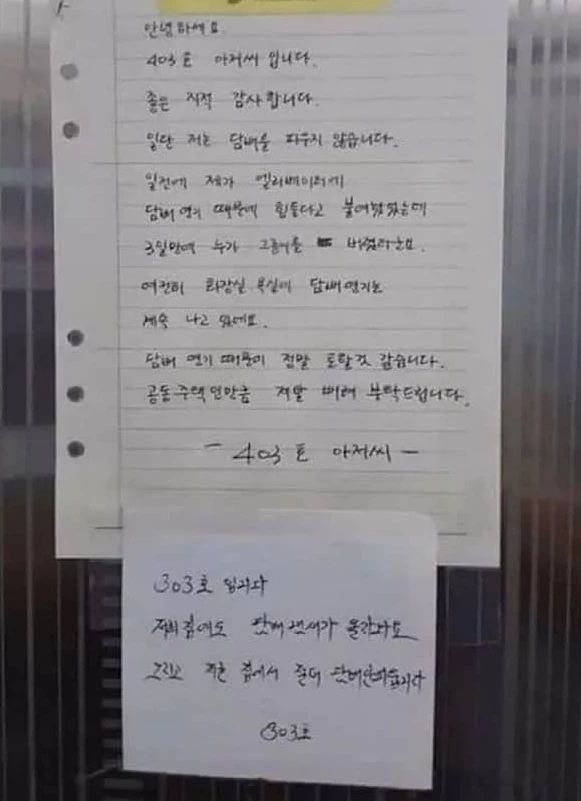 안녕하세요.
403호 아저씨 입니다.
좋은 지적 감사합니다.
일단 저는 담배를 피우지 않습니다.
일전에 제가 엘리베이터에
담배 연기 때문에 힘들다고 붙여놨었는데
3일만에 누가 그종이를 버렸더군요.
여전히 화장실 욕실에 담배연기는
계속 나고 있어요.
담배 연기 때문에 정말 토할것 같습니다.
공동주택인만큼 제발 배려 부탁드립니다.
- 403호 아저씨 -
303호 입니다
저희집에도 담배 냄새가 올라와요
그리고 저흰 집에서 절대 담배안피웁니다
303호